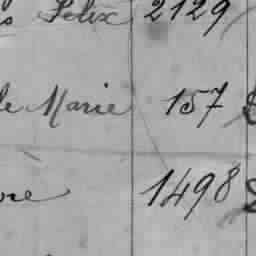 s Felix 2129
le Marie 157
ore 1498